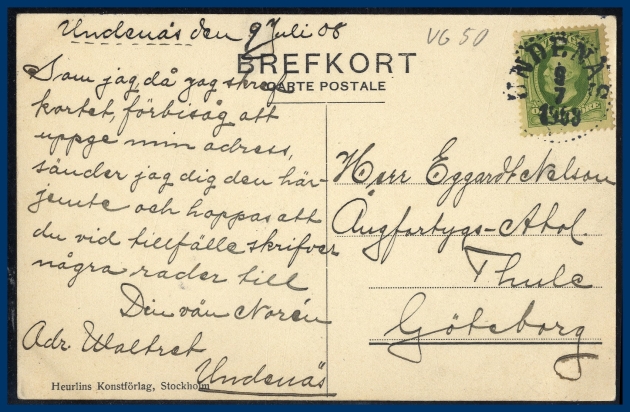 Undenäs den 9 Juli 08
VG 50
BREFKORT
CARTE POSTALE
UNDENÄS
9
7
1908
Som jag då jag skref
kortet, förbisåg att
uppge min adress,
sänder jag dig den här-
jemte och hoppas att
du vid tillfälle skrifver
några rader till
Din vän Norén
Adr. Waltret
Undenäs
Herr Eggardt Nelson
Ångfartygs-Akol.
Thule
Göteborg
Heurlins Konstförlag, Stockholm